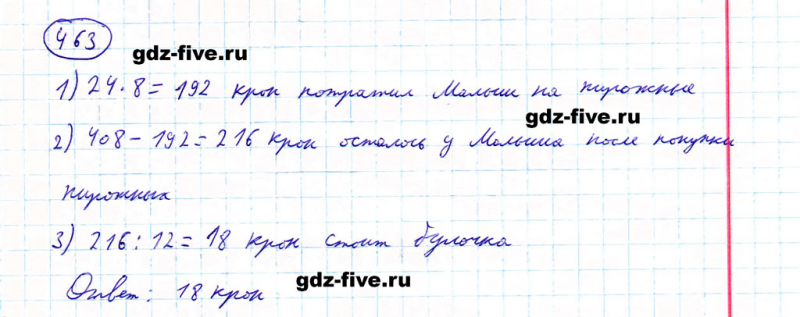 463
gdz-five.ru
1) 24 · 8 = 192 крон потратил Малыш на пирожные
gdz-five.ru
2) 408 - 192 = 216 крон осталось у Малыша после покупки
пирожных
3) 216 : 12 = 18 крон стоит булочка
gdz-five.ru
Ответ: 18 крон